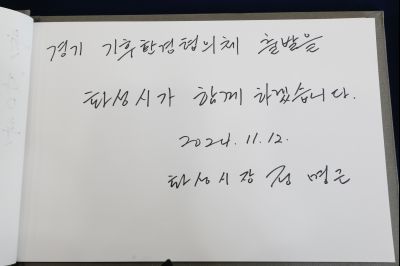 경기 기후환경협의체 출발을
화성시가 함께 하겠습니다.
2024. 11. 12.
화성시장 정명근